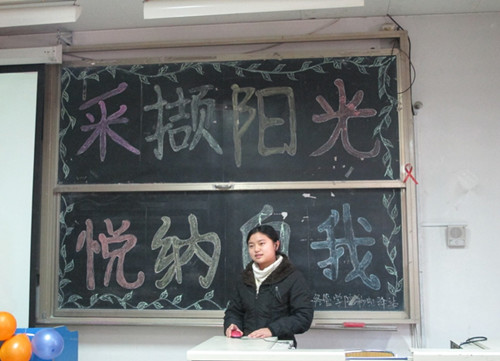 采撷阳光
悦纳自我